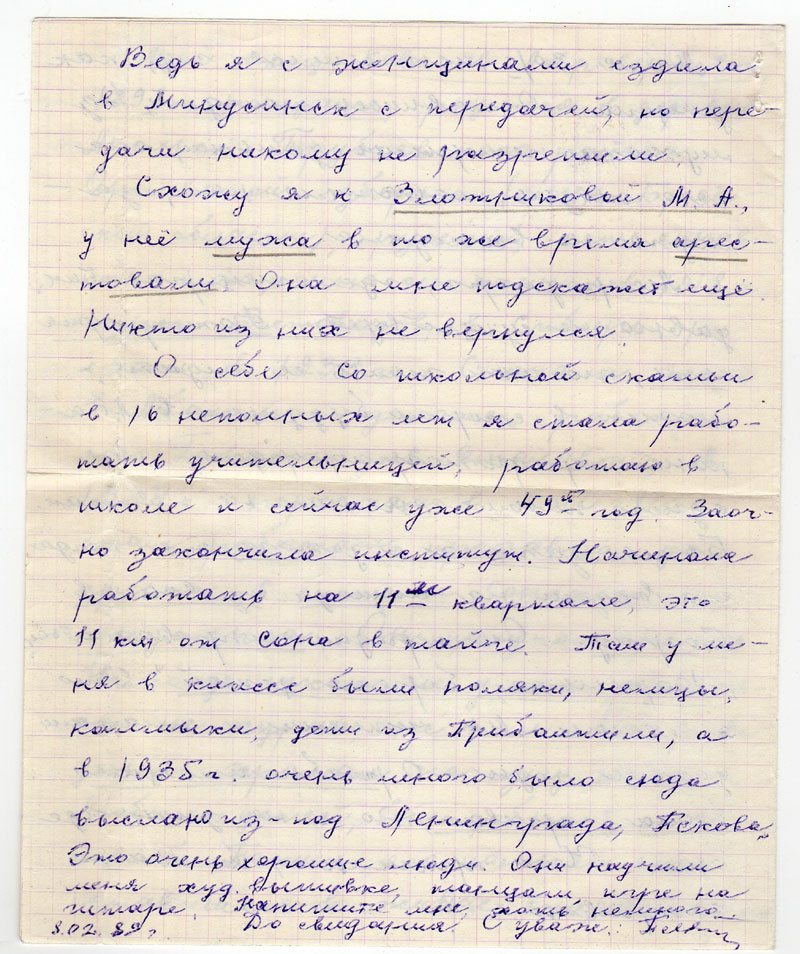 Ведь я с женщинами ездила
в Минусинск с передачей, но пере-
дачи никому не разрешили.
Схожу я к Зложниковой М. А.,
у неё мужа в то же время арес-
товали. Она мне подскажет ещё.
Никто из них не вернулся.
О себе. Со школьной скамьи
в 16 неполных лет я стала рабо-
тать учительницей, работаю в
школе и сейчас уже 49й год. Заоч-
но закончила институт. Начинала
работать на 11ом квартале, это
11 км от Сона в тайге. Там у ме-
ня в классе были поляки, немцы,
калмыки, дети из Прибалтики, а
в 1935 г очень много было сюда
выслано из-под Ленинграда, Пскова.
Это очень хорошие люди. Они научили
меня худ. вышивке, танцам, игре на
гитаре. Напишите мне, хоть немного.
До свидания. С уваж.:
8.02.89г.